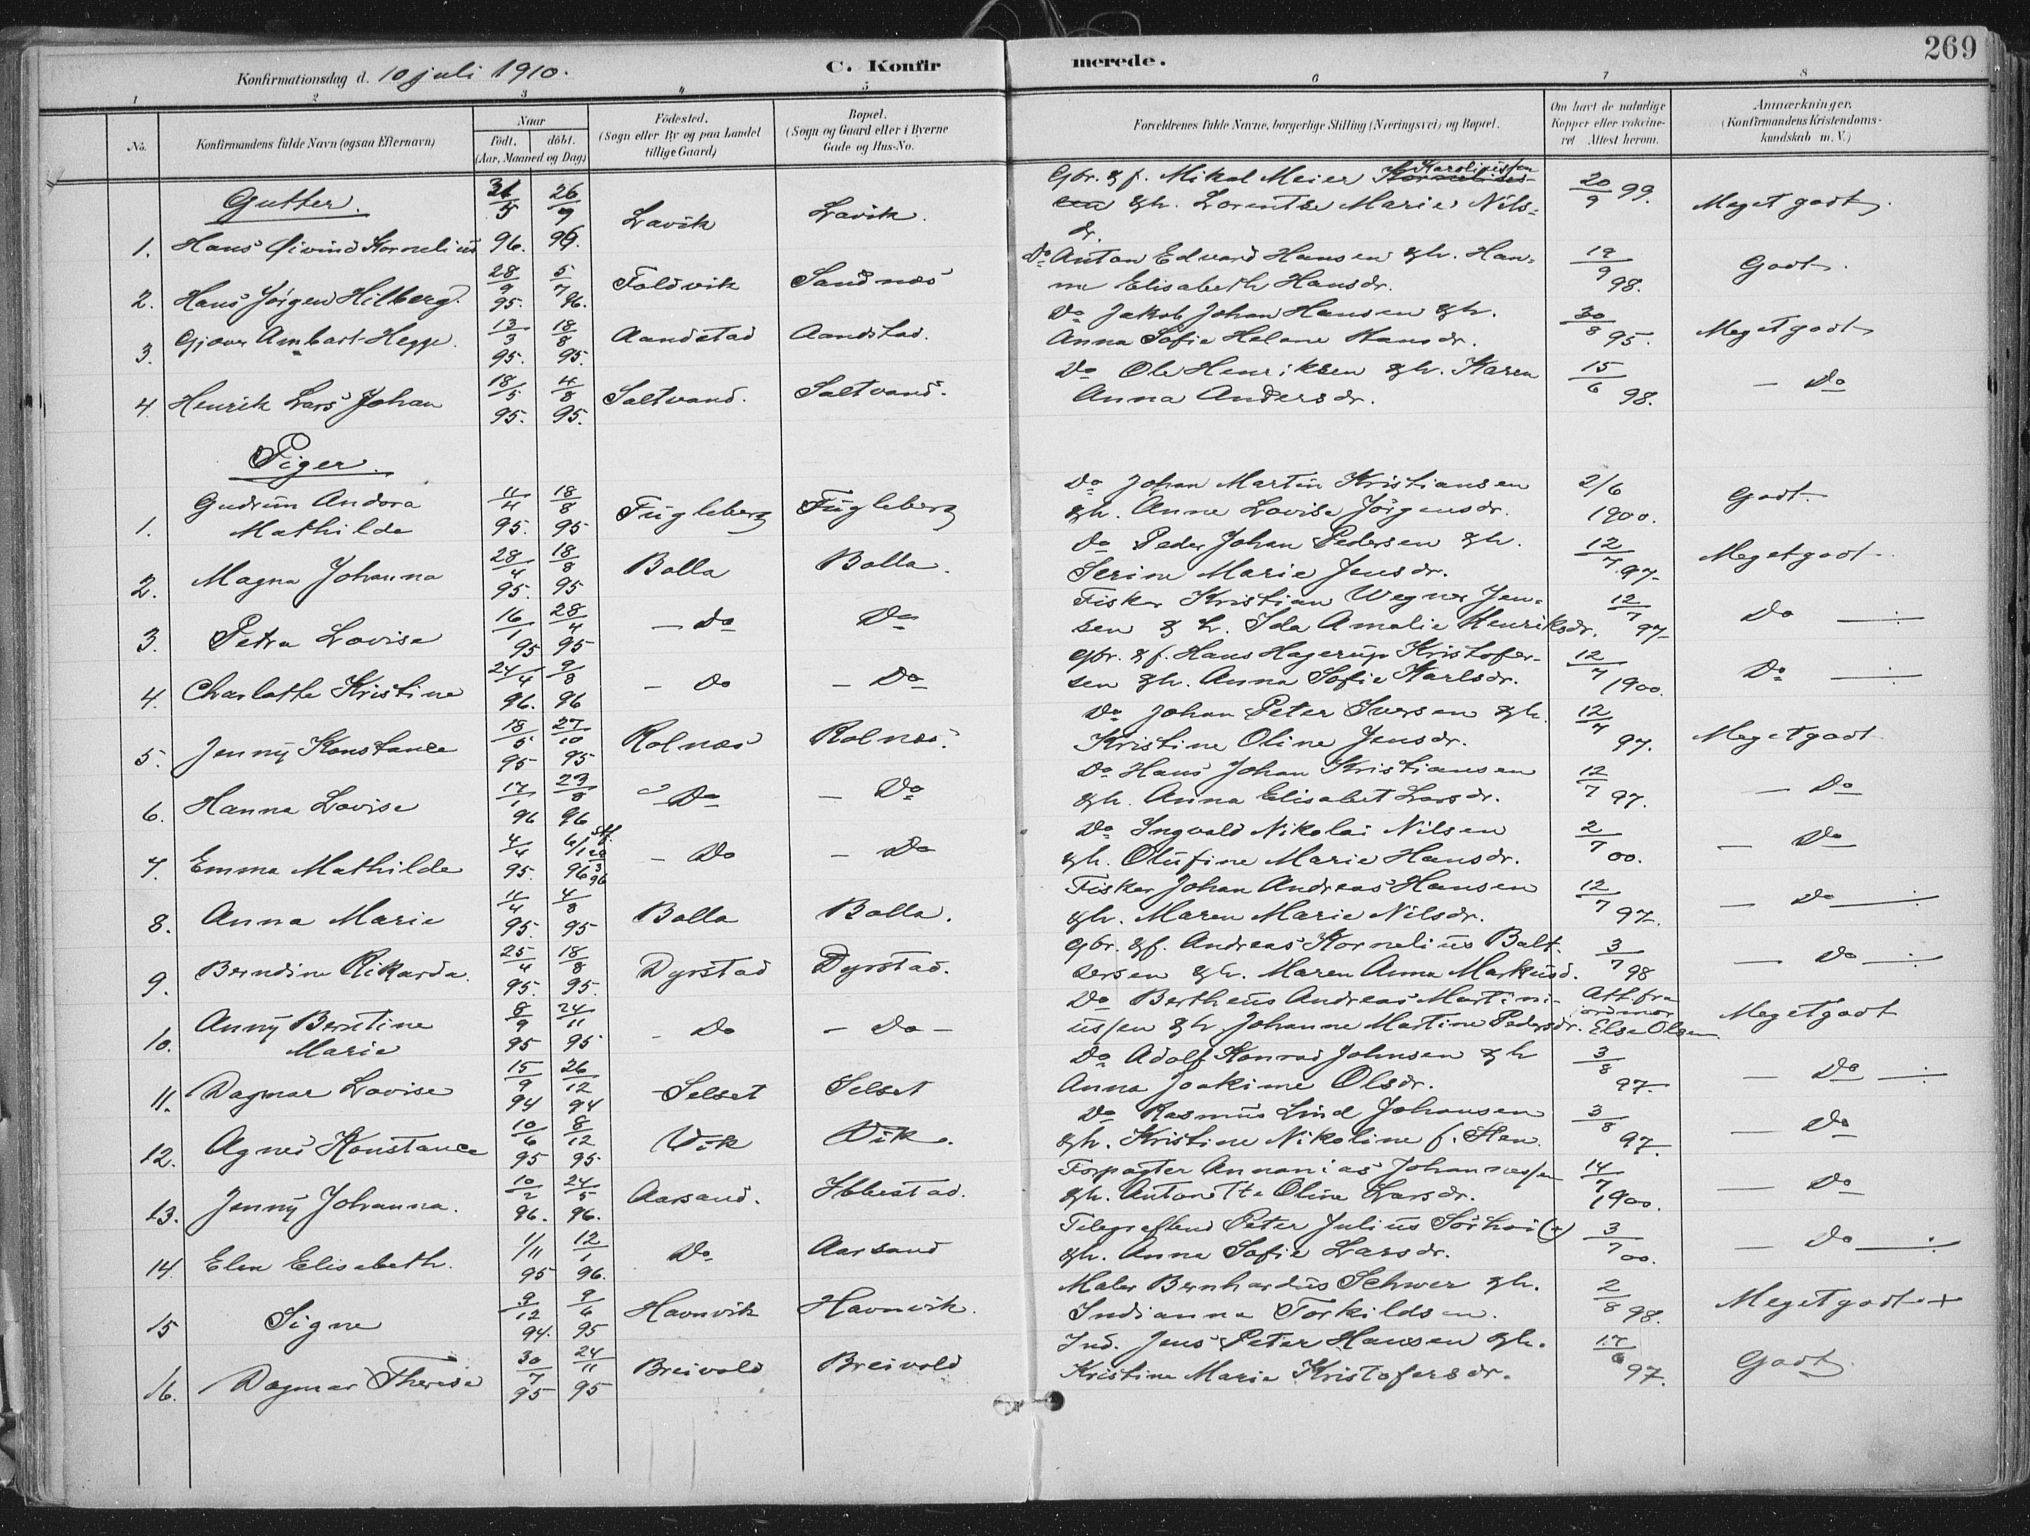 269
Konfirmationsdag d. 10 juli 1910.
C. Konfir
merede.
1 2 3 4 5 6 7 8
No.
Konfirmandens fulde Navn (ogsaa Efternavn)
Naar
födt. döbt.
(Aar, Maaned og Dag)
Födested.
(Sogn eller By og paa Landet
tillige Gaard)
Bopæl.
(Sogn og Gaard eller i Byerne
Gade og Hus-No.
Forældrenes fulde Navne, borgerlige Stilling (Næringsvei) og Bopæl.
Om havt de naturlige
Kopper eller vaccine-
ret Attest herom.
Anmærkninger.
(Konfirmandens Kristendoms-
kundskab m. V.)
Gutter.
1. Hans Øivind Kornelius 31/5 96. 26/9 96. Lavik Lavik. Gbr. & f. Mikal Meier Karolius/en
& h. Lorentse Marie Nils-
dr. 20/9 99. Meget godt.
2. Hans Jörgen Hilberg. 28/9 95. 5/7 96. Foldvik Sandnæs Do Anton Edvard Hansen & h. Han-
na Elisabeth Hansdr. 12/9 98. Godt.
3. Gjøver Ambart Hegge. 13/3 95. 18/8 95. Aandstad Aandstad. Do Jakob Johan Hansen & h.
Anna Sofie Helene Hansdr. 30/8 95. Meget godt
4. Henrik Lars Johan 18/5 95. 4/8 95. Saltvand. Saltvand. Do Ole Henriksen & h. Karen
Anna Andersdr. 15/6 98. — Do
Piger.
1. Gudrun Andora
Mathilde 4/4 95. 18/8 95 Fugleberg Fugleberg Do Johan Martin Kristiansen
& h. Anne Lovise Jörgensdr. 2/6 1900. Godt.
2. Magna Johanna 28/4 95. 18/8 95 Bolla Bolla. Do Peder Johan Pedersen & h.
Serine Marie Jensdr. 12/7 97. Meget godt.
3. Petra Lovise 16/1 95 28/4 95 — Do Do Fisker Kristian Wegner Jen-
sen & h. Ida Amalie Henriksdr. 12/7 97. Do —:
4. Charlotte Kristine 24/4 96. 9/8 96 — Do — Do Gbr. & f. Hans Hagerup Kristofer-
sen & h. Anna Sofie Karlsdr. 12/7 1900. Do —:
5. Jenny Konstance 18/5 95 27/10 95 Rolnæs Rolnæs. Do Johan Peter Iversen & h.
Kristine Oline Jensdr. 12/7 97. Meget godt
6. Hanna Lovise 17/1 96 23/8 96 Do — Do Do Hans Johan Kristiansen
& h. Anna Elisabet Larsdr. 12/7 97. — Do
7. Emma Mathilde 4/4 95. 6/1 96 st. 29/3 96 — Do — Do Do Ingvald Nikolai Nilsen
& h. Olufine Marie Hansdr. 2/7 00. — Do
8. Anna Marie 4/4 95. 4/8 95 Bolla Bolla. Fisker Johan Andreas Hansen
& h. Maren Marie Nilsdr. 12/7 97. — Do —:
9. Berndine Rikarda. 25/4 95. 18/8 95. Dyrstad Dyrstad. Gbr. & f. Andreas Kornelius Balt-
sersen & h. Maren Anna Markusd. 3/7 98 — Do —:
10. Anny Berntine
Marie 8/9 95 24/11 95 — Do — Do — Do Bertheus Andreas Martini-
us/en & h. Johanne Martine Pedersdr. Att. fra
jordmor
Else Olsen Meget godt
11. Dagmar Lovise 15/9 94 26/12 94 Selset Selset Do Adolf Konrad Johnsen & h
Anna Joakime Olsdr. 3/8 97. — Do —:
12. Agnes Konstance 10/6 95 8/12 95. Vik Vik. Do Rasmus Lind Johansen
& h. Kristine Nikoline f. Sten. 3/8 97. — Do
13. Jenny Johanna. 10/2 96. 24/5 96. Aarsand. Ibbestad. Forpagter Annanias Johannes/en
& h. Antonette Oline Larsdr. 14/7 1900. — Do
14. Elen Elisabeth. 1/11 95 12/1 96. Do Aarsand Telegrafbud Peter Julius Sörhoi (r)
& h. Anna Sofie Larsdr. 3/7 00. — Do —:
15 Signe 9/12 94. 9/6 95 Havnvik Havnvik. Maler Bernhardus Schwer & h.
Indianna Torkildsen. 2/8 98. Meget godt +
16. Dagmar Therese 30/7 95 24/11 95 Breivold Breivold Ind. Jens Peter Hansen & h.
Kristine Marie Kristofersdr. 17/6 97. Godt.